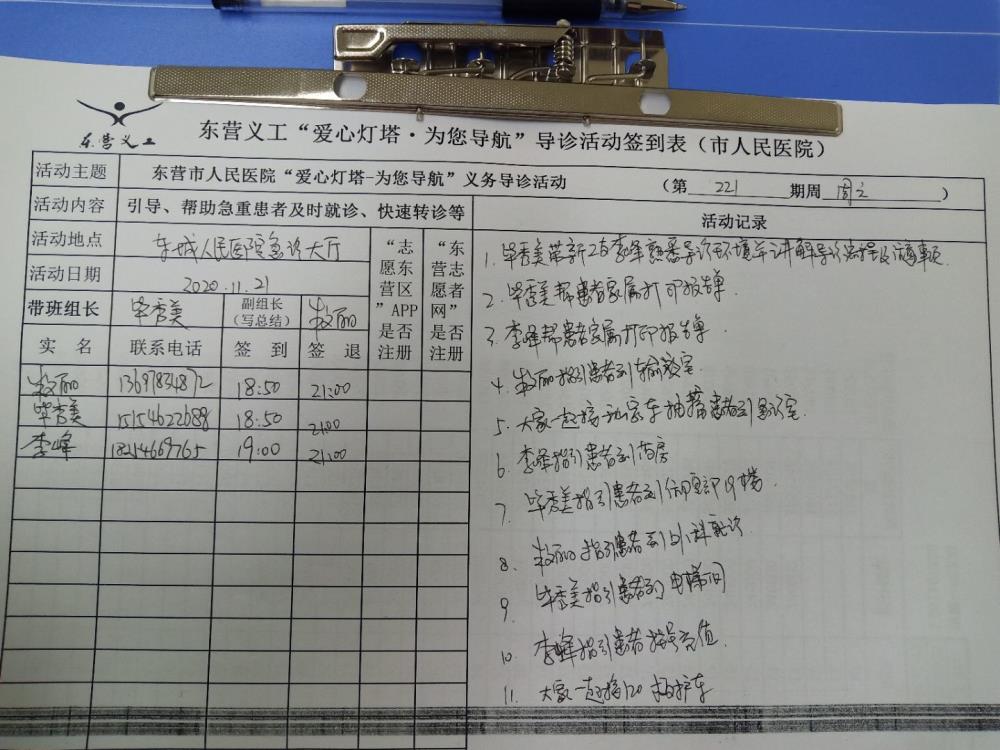 东营义工
东营义工“爱心灯塔·为您导航”导诊活动签到表（市人民医院）
活动主题 东营市人民医院“爱心灯塔-为您导航”义务导诊活动 （第 221 期周 周六 ）
活动内容 引导、帮助急重患者及时就诊、快速转诊等 活动记录
活动地点 东城人民医院急诊大厅
活动日期 2020.11.21
“志愿东营区”APP是否注册
“东营志愿者网”是否注册
带班组长 毕秀美 副组长（写总结） 牧丽
实 名 联系电话 签 到 签 退
牧丽 13697834872 18:50 21:00
毕秀美 15154622688 18:50 21:00
李峰 18214669765 19:00 21:00
1. 毕秀美带新工李峰熟悉导诊环境并讲解导诊流程及注意事项
2. 毕秀美帮患者家属打印报告单.
3. 李峰帮患者家属打印报告单
4. 牧丽指引患者到输液室
5. 大家一起接动家车抽搐患者到急诊室
6. 李峰指引患者到药房
7. 毕秀美指引患者到住院部19楼.
8. 牧丽指引患者到外科就诊.
9. 毕秀美指引患者到电梯间
10. 李峰指引患者挂号充值.
11. 大家一起接120救护车